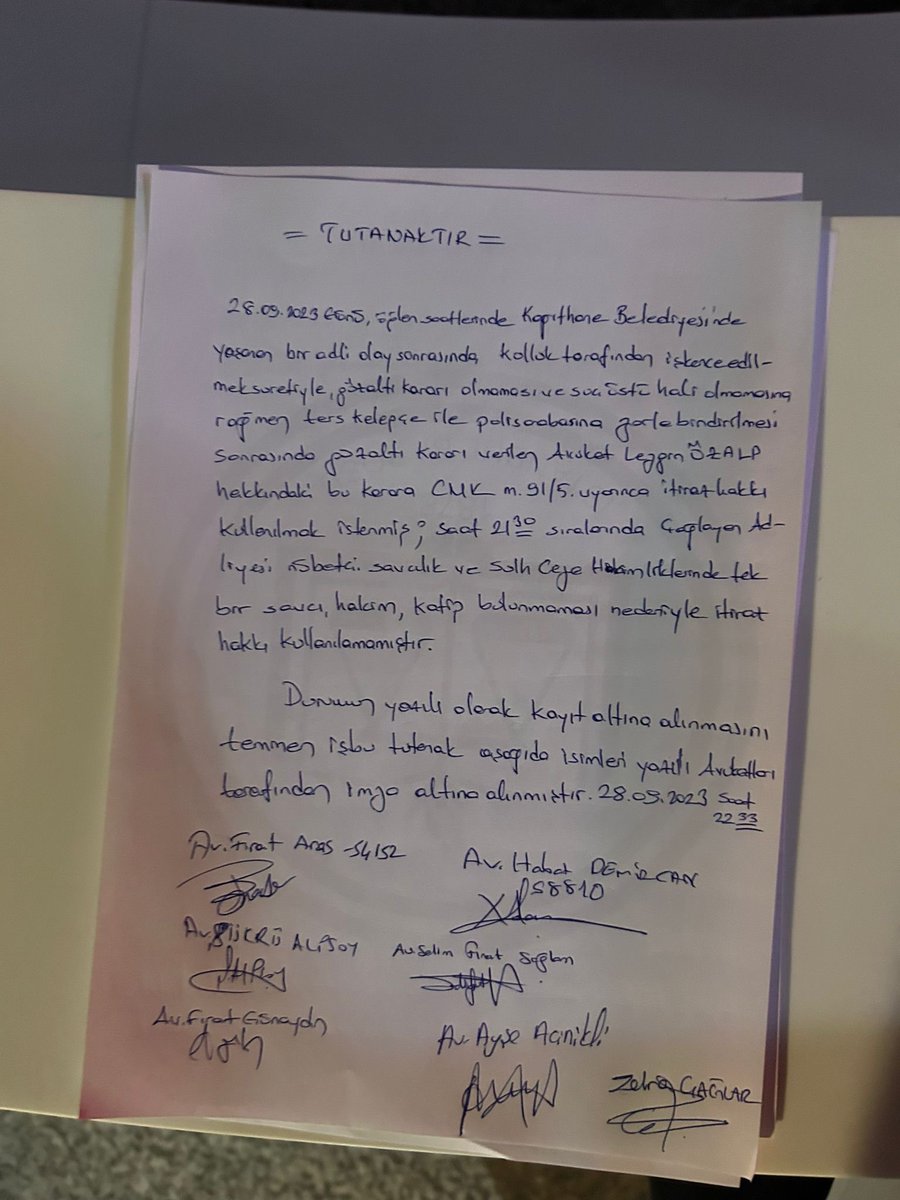 = TUTANAKTIR =
28.09.2023 Günü, öğlen saatlerinde Kağıthane Belediyesinde
yaşanan bir adli olay sonrasında, kolluk tarafından işkence edil-
mek suretiyle, gözaltı kararı olmaması ve suçüstü hali olmamasına
rağmen ters kelepçe ile polis arabasına zorla bindirilmesi
sonrasında gözaltı kararı verilen Avukat Lezgin ÖZALP
hakkındaki bu karara CMK m. 91/5. uyarınca itiraz hakkı
kullanılmak istenmiş; saat 21:30 sıralarında Çağlayan Ad-
liyesi nöbetçi savcılık ve Sulh Ceza Hakimliklerinde tek
bir savcı, hakim, katip bulunmaması nedeniyle itiraz
hakkı kullanılamamıştır.
Durumun yazılı olarak kayıt altına alınmasını
teminen işbu tutanak aşağıda isimleri yazılı Avukatlar
tarafından imza altına alınmıştır. 28.09.2023 Saat
22 33
Av. Fırat Aras -54152
Av. Habat DEMİRCAN
58810
Av. ŞÜKRÜ ALİSOY
Av. Selim Fırat
Av. Fırat Günaydın
Av. Ayşe Acinikli
ÇAĞLAR